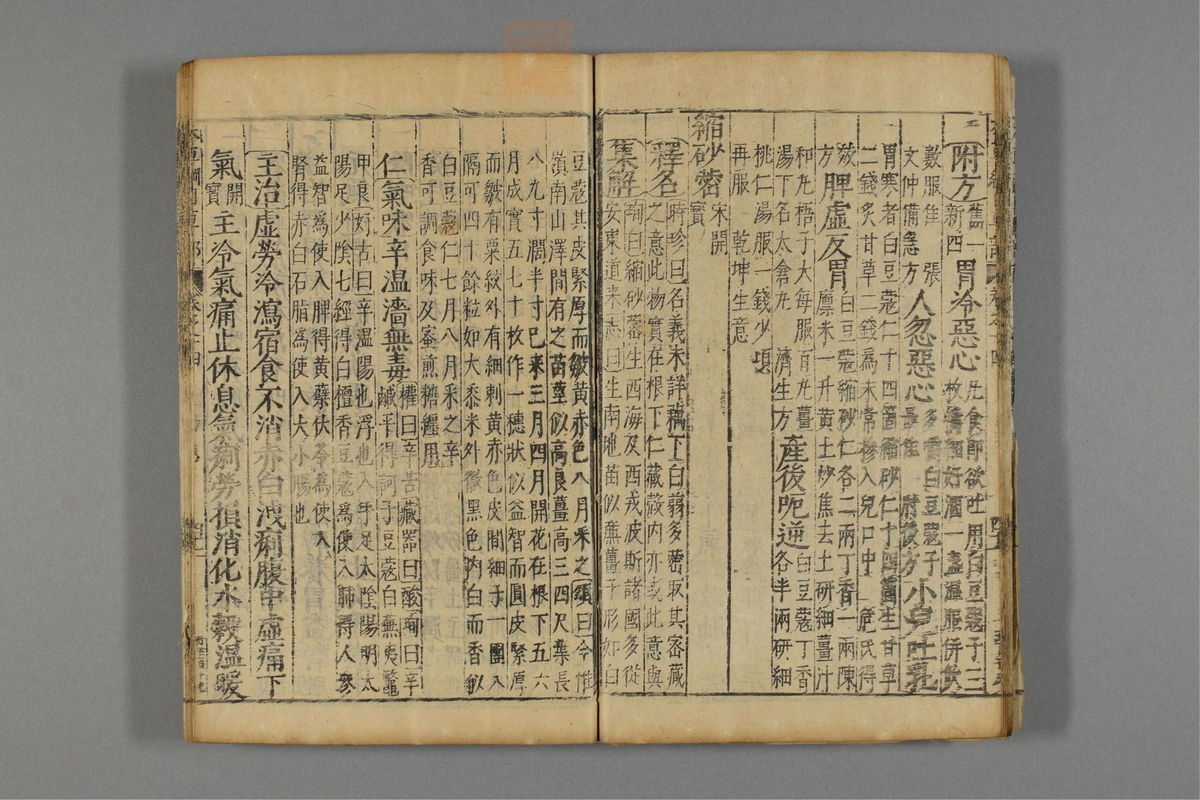 附方 舊一新四 胃冷惡心 凡食即欲吐用白豆蔻子三枚擣細好酒一盞溫服併飲
數服佳 張文仲備急方 人忽惡心 多嚼白豆蔻子最佳 肘後方 小兒吐乳
胃寒者白豆蔻仁十四箇縮砂仁十四箇生甘草
二錢炙甘草二錢為末常摻入兒口中 危氏得
效方 脾虛反胃 白豆蔻縮砂仁各二兩丁香一兩陳廩米一升黃土炒焦去土研細薑汁
和丸梧子大每服百丸薑湯下名太倉丸 濟生方 產後呃逆 白豆蔻丁香各半兩研細
桃仁湯服一錢少頃
再服 乾坤生意
縮砂蔤 宋開寶
釋名 時珍曰名義未詳藕下白蒻多蔤取其密藏之意此物實在根下仁藏殼內亦或此意與
集解 珣曰縮砂蔤生西海及西戎波斯諸國多從安東道來志曰生南地苗似廉薑子形如白
豆蔻其皮緊厚而皺黃赤色八月采之頌曰今惟
嶺南山澤間有之苗莖似高良薑高三四尺葉長
八九寸闊半寸已來三月四月開花在根下五六
月成實五七十枚作一穗狀似益智而圓皮緊厚
而皺有粟紋外有細刺黃赤色皮間細子一團八
隔可四十餘粒如大黍米外微黑色內白而香似
白豆蔻仁七月八月采之辛
香可調食味及蜜煎糖纏用
仁氣味辛溫濇無毒 權曰辛苦藏器曰酸珣曰辛鹹平得訶子豆蔻白無荑鱉
甲良好古曰辛溫陽也浮也入手足太陰陽明太
陽足少陰七經得白檀香豆蔻為使入肺得人參
益智為使入脾得黃蘗伏苓為使入
腎得赤白石脂為使入大小腸也
主治虛勞冷瀉宿食不消赤白洩痢腹中虛痛下
氣 開寶 主冷氣痛止休息氣痢勞損消化水穀溫暖